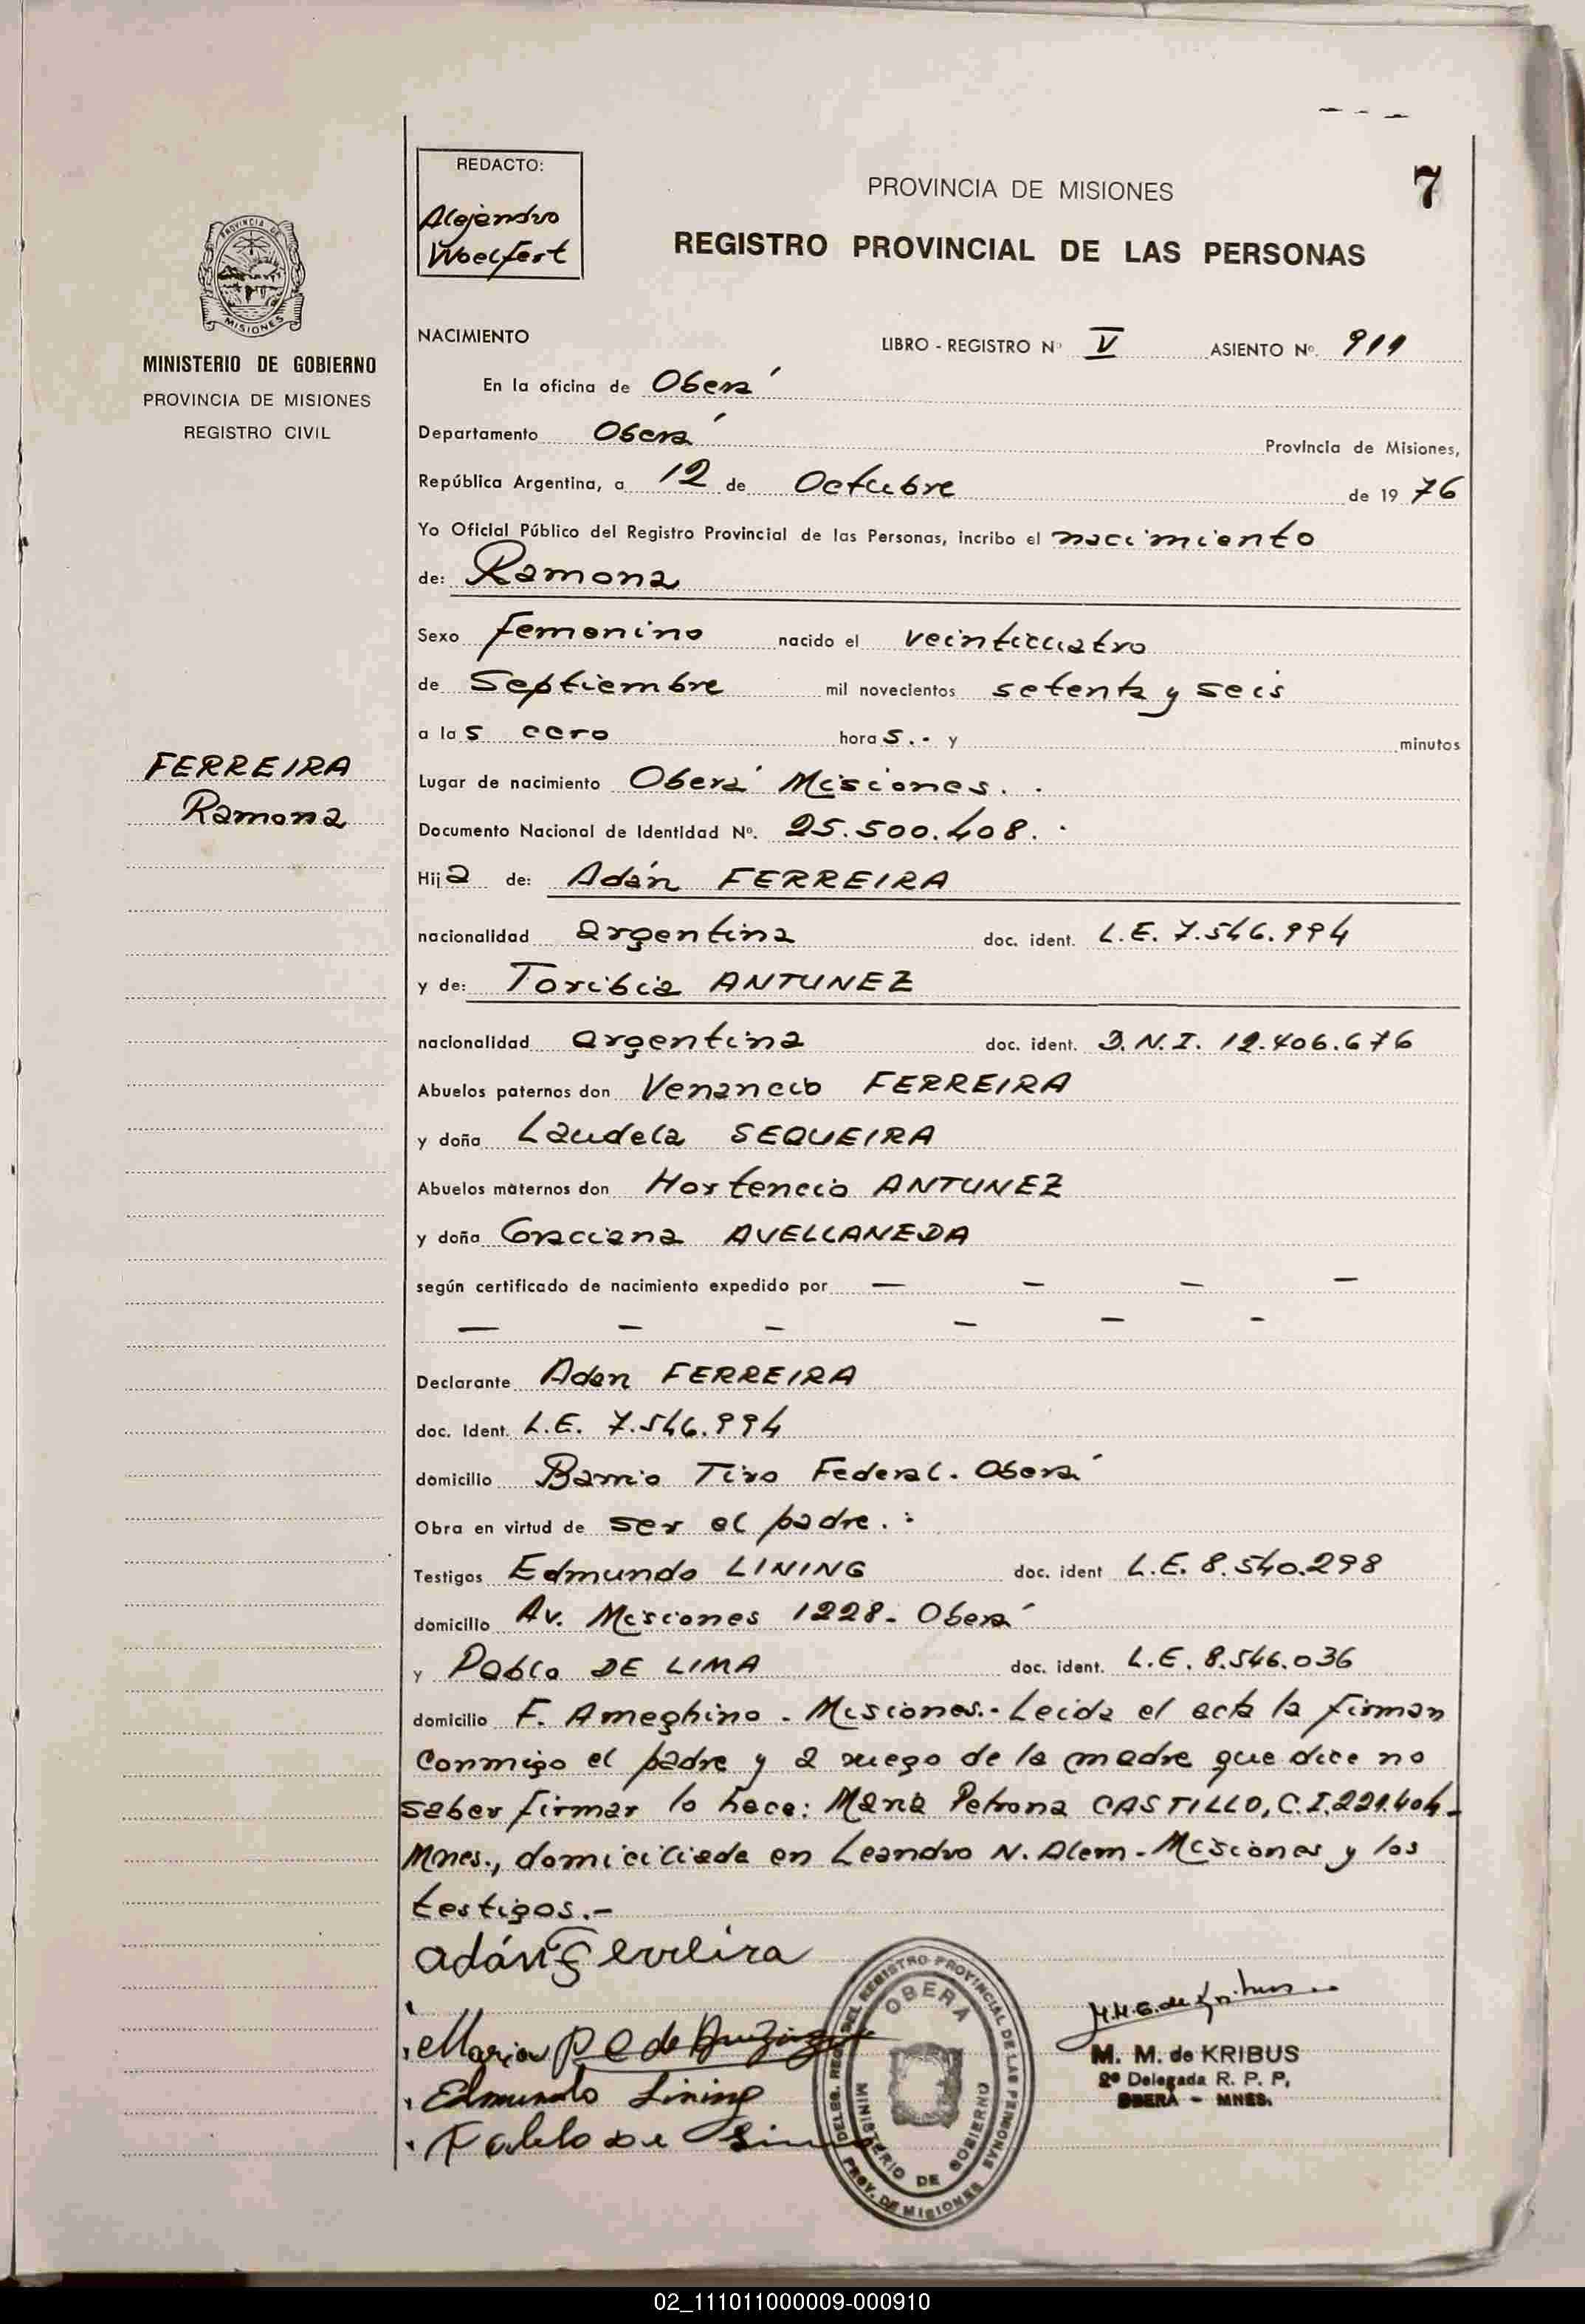 REDACTO:
Alejandro
Woelfert
PROVINCIA DE MISIONES
7
REGISTRO PROVINCIAL DE LAS PERSONAS
PROVINCIA DE
MISIONES
MINISTERIO DE GOBIERNO
PROVINCIA DE MISIONES
REGISTRO CIVIL
FERREIRA
Ramona
NACIMIENTO
LIBRO - REGISTRO Nº V ASIENTO Nº. 911
En la oficina de Oberá
Departamento Oberá Provincia de Misiones,
República Argentina, a 12 de Octubre de 19 76
Yo Oficial Público del Registro Provincial de las Personas, incribo el nacimiento
de: Ramona
Sexo femenino nacido el veinticuatro
de Septiembre mil novecientos setenta y seis
a las cero hora s.- y minutos
Lugar de nacimiento Oberá Misiones. .
Documento Nacional de Identidad Nº. 25.500.408. .
Hija de: Adán FERREIRA
nacionalidad argentina doc. ident. L.E. 7.546.994
y de: Toribia ANTUNEZ
nacionalidad argentina doc. ident. D.N.I. 12.406.676
Abuelos paternos don Venancio FERREIRA
y doña Laudela SEQUEIRA
Abuelos maternos don Hortencio ANTUNEZ
y doña Graciana AVELLANEDA
según certificado de nacimiento expedido por — — — —
— — — — — -
Declarante Adan FERREIRA
doc. Ident. L.E. 7.546.994
domicilio Barrio Tiro Federal. Oberá
Obra en virtud de ser el padre. :
Testigos Edmundo LINING doc. ident L.E. 8.540.298
domicilio Av. Misiones 1228- Oberá
y Pablo DE LIMA doc. ident. L.E. 8.546.036
domicilio F. Ameghino - Misiones.- Leida el acta la firman
conmigo el padre y a ruego de la madre que dice no
saber firmar lo hace: María Petrona CASTILLO, C.I. 221.404-
Mnes., domiciliada en Leandro N. Alem - Misiones y los
testigos.-
adán Ferreira
Maria P C de
Edmundo Lining
Pablo De Lima
DELEG. REG. DEL REGISTRO PROVINCIAL DE LAS PERSONAS
OBERA
MINISTERIO DE GOBIERNO
PROV. DE MISIONES
M. M. de KRIBUS
2º Delegada R. P. P.
OBERA - MNES.
02_111011000009-000910